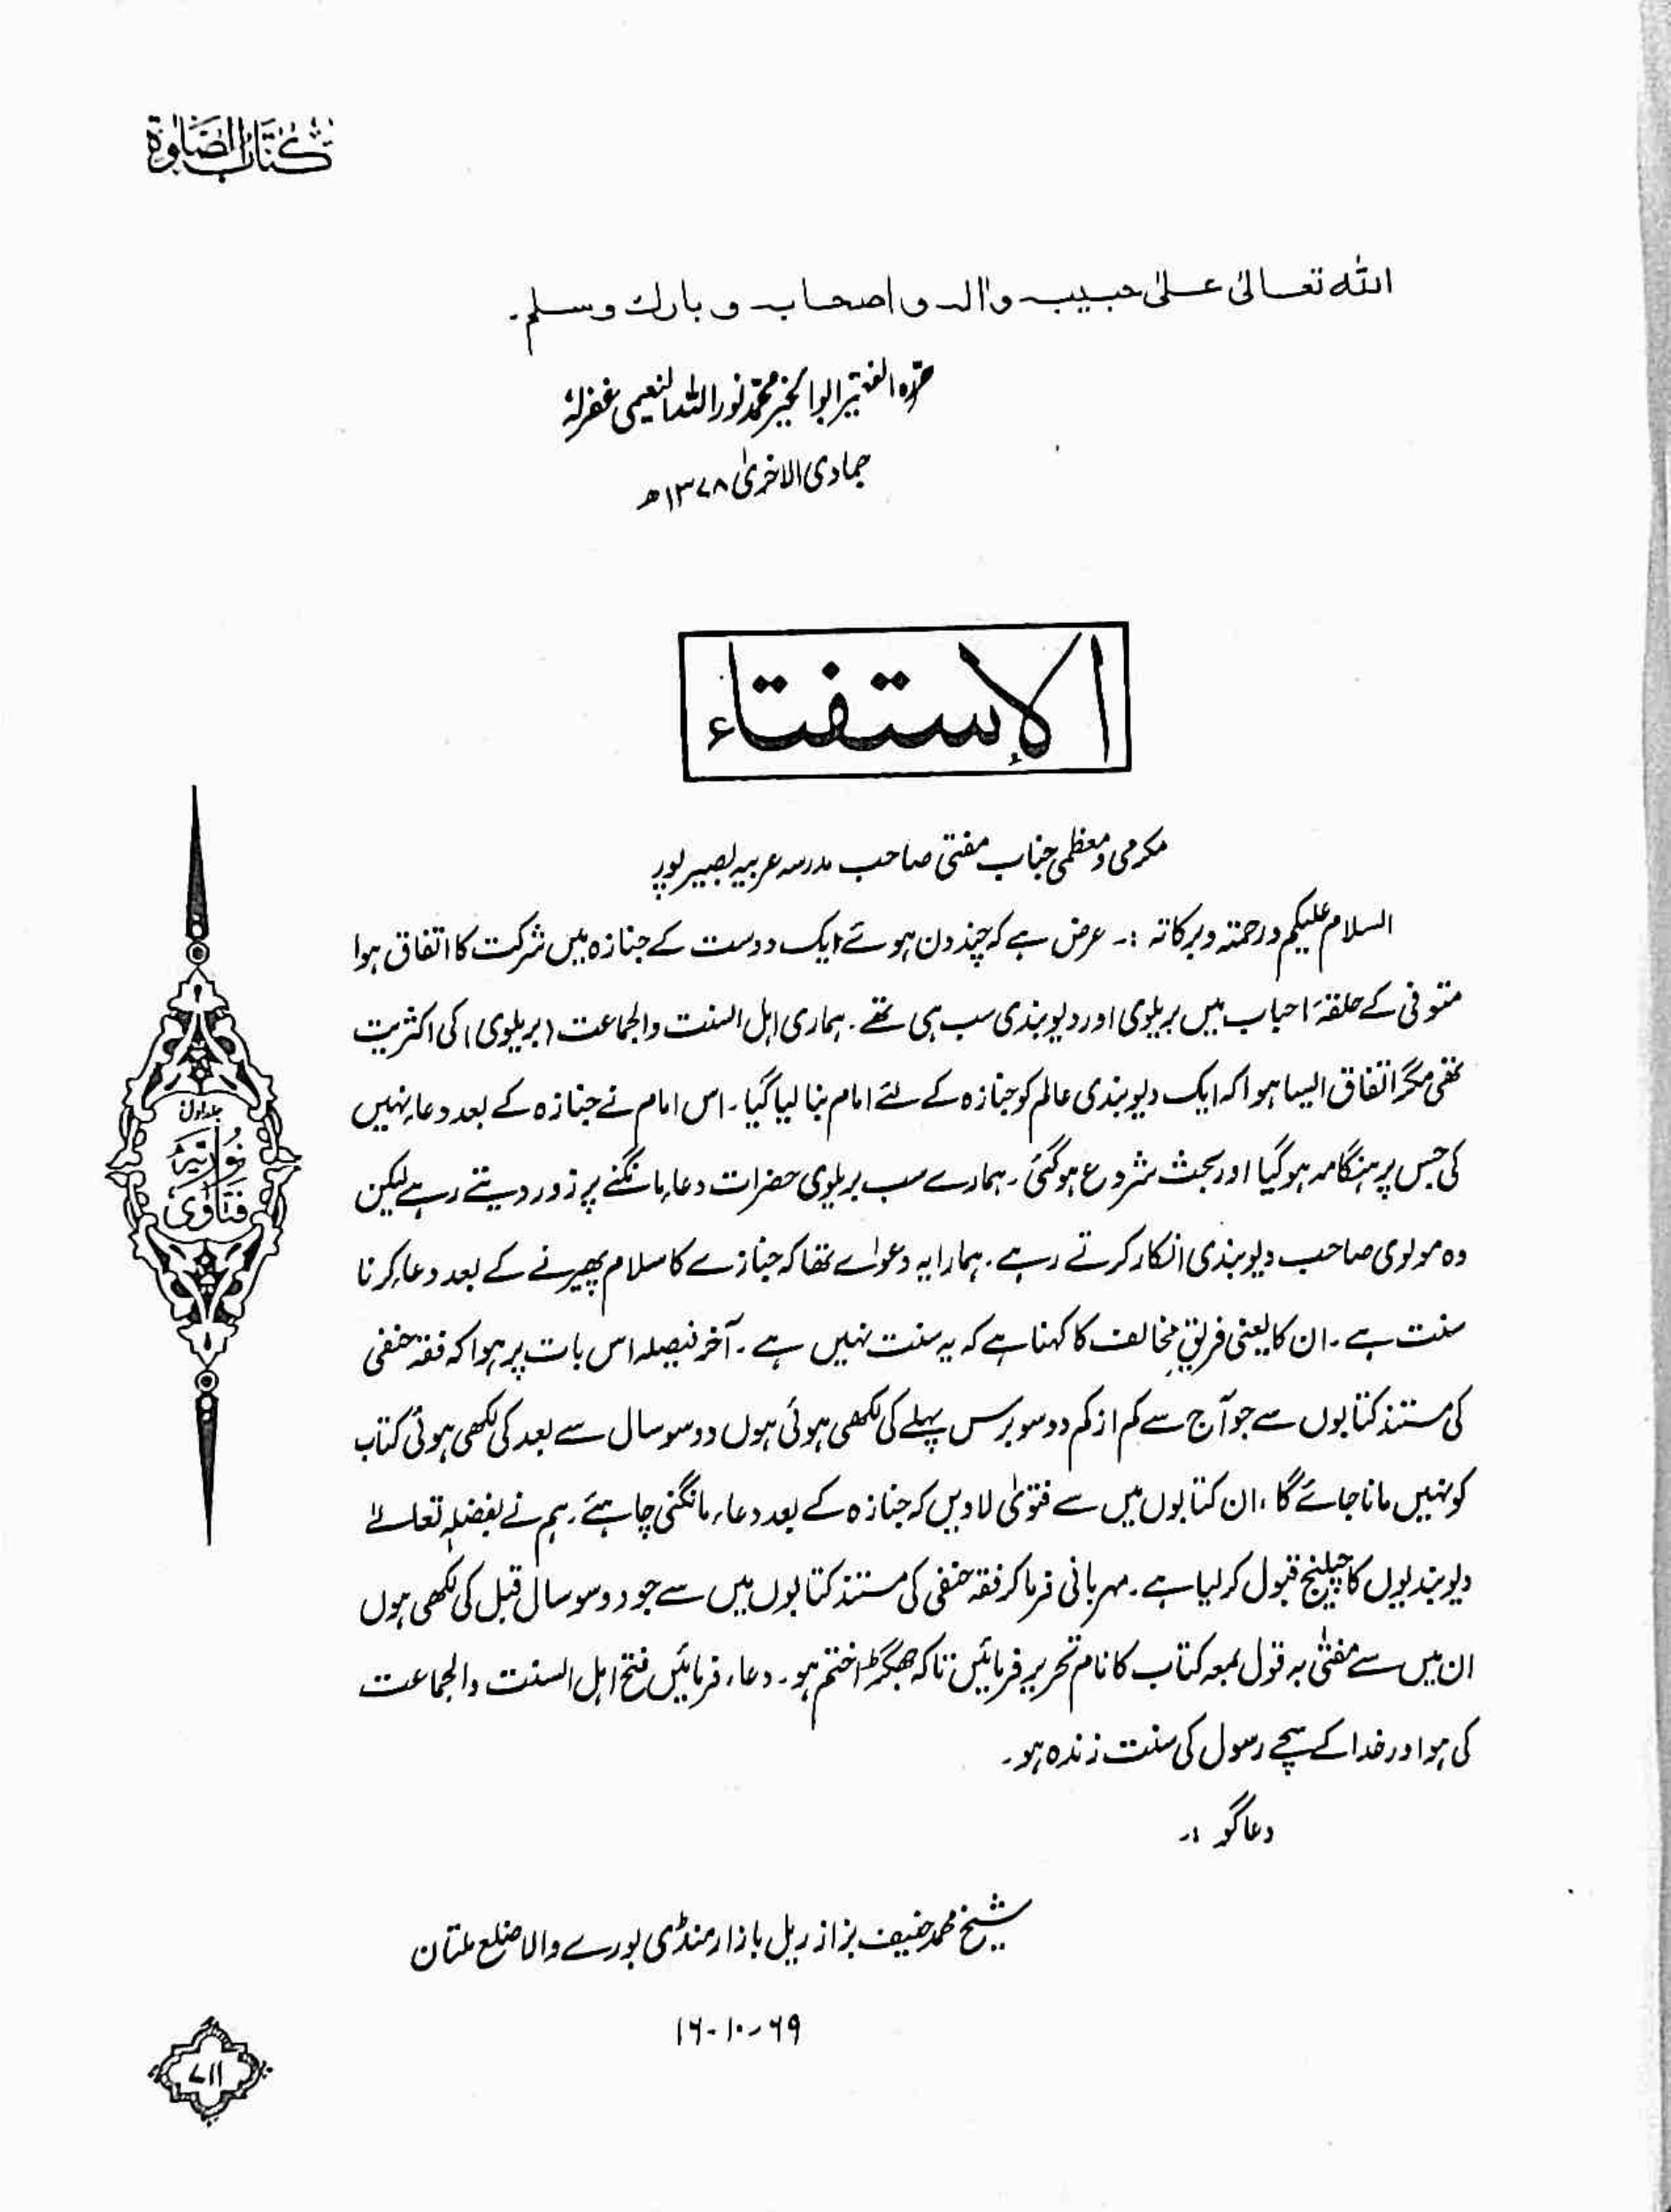 كتاب الصلوة
الله تعالیٰ علیٰ حبیبہ واٰلہ واصحابہ وبارك وسلم۔
حرّہ الفقیر ابوالخیر محمّد نور اللہ النعیمی غفرلہٗ
جمادی الاخریٰ ۱۳۷۸ھ
الإستفتاء
مکرمی و معظمی جناب مفتی صاحب مدرسہ عربیہ بصیر پور
السلام علیکم ورحمتہ وبرکاتہ :۔ عرض ہے کہ چند دن ہوئے ایک دوست کے جنازہ میں شرکت کا اتفاق ہوا
متوفی کے حلقۂ احباب میں بریلوی اور دیوبندی سب ہی تھے۔ ہماری اہل السنت والجماعت (بریلوی) کی اکثریت
تھی مگر اتفاق ایسا ہوا کہ ایک دیوبندی عالم کو جنازہ کے لئے امام بنا لیا گیا۔ اس امام نے جنازہ کے بعد دعاء نہیں
کی جس پر ہنگامہ ہو گیا اور بحث شروع ہو گئی۔ ہمارے سب بریلوی حضرات دعاء مانگنے پر زور دیتے رہے لیکن
وہ مولوی صاحب دیوبندی انکار کرتے رہے۔ ہمارا یہ دعوٰے تھا کہ جنازے کا سلام پھیرنے کے بعد دعاء کرنا
سنت ہے۔ ان کا یعنی فریقِ مخالف کا کہنا ہے کہ یہ سنت نہیں ہے۔ آخر فیصلہ اس بات پر ہوا کہ فقہ حنفی
کی مستند کتابوں سے جو آج سے کم از کم دو سو برس پہلے کی لکھی ہوئی ہوں دو سو سال سے بعد کی لکھی ہوئی کتاب
کو نہیں مانا جائے گا، ان کتابوں میں سے فتویٰ لا دیں کہ جنازہ کے بعد دعاء مانگنی چاہئے۔ ہم نے بفضلہٖ تعالےٰ
دیوبندیوں کا چیلنج قبول کر لیا ہے۔ مہربانی فرما کر فقہ حنفی کی مستند کتابوں میں سے جو دو سو سال قبل کی لکھی ہوں
ان میں سے مفتیٰ بہ قول بمعہ کتاب کا نام تحریر فرمائیں تاکہ جھگڑا ختم ہو۔ دعاء فرمائیں فتح اہل السنت والجماعت
کی ہو اور خدا کے سچے رسول کی سنت زندہ ہو۔
دعاگو :۔
شیخ محمد حنیف بزاز ریل بازار منڈی بورے والا ضلع ملتان
۱۶-۱۰-۶۹
جلد اول
نُورِیَّہ
فَتَاوٰی
۷۱۱